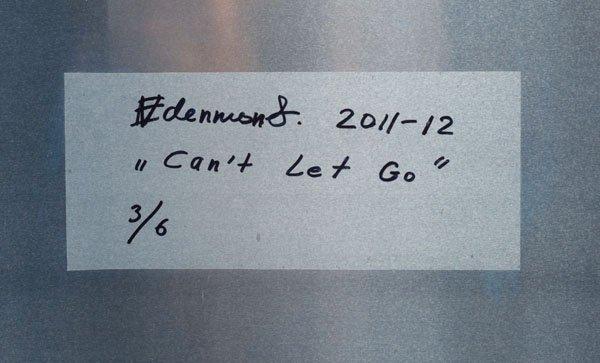 Edenmont. 2011-12
„ Can't Let Go ”
3/6